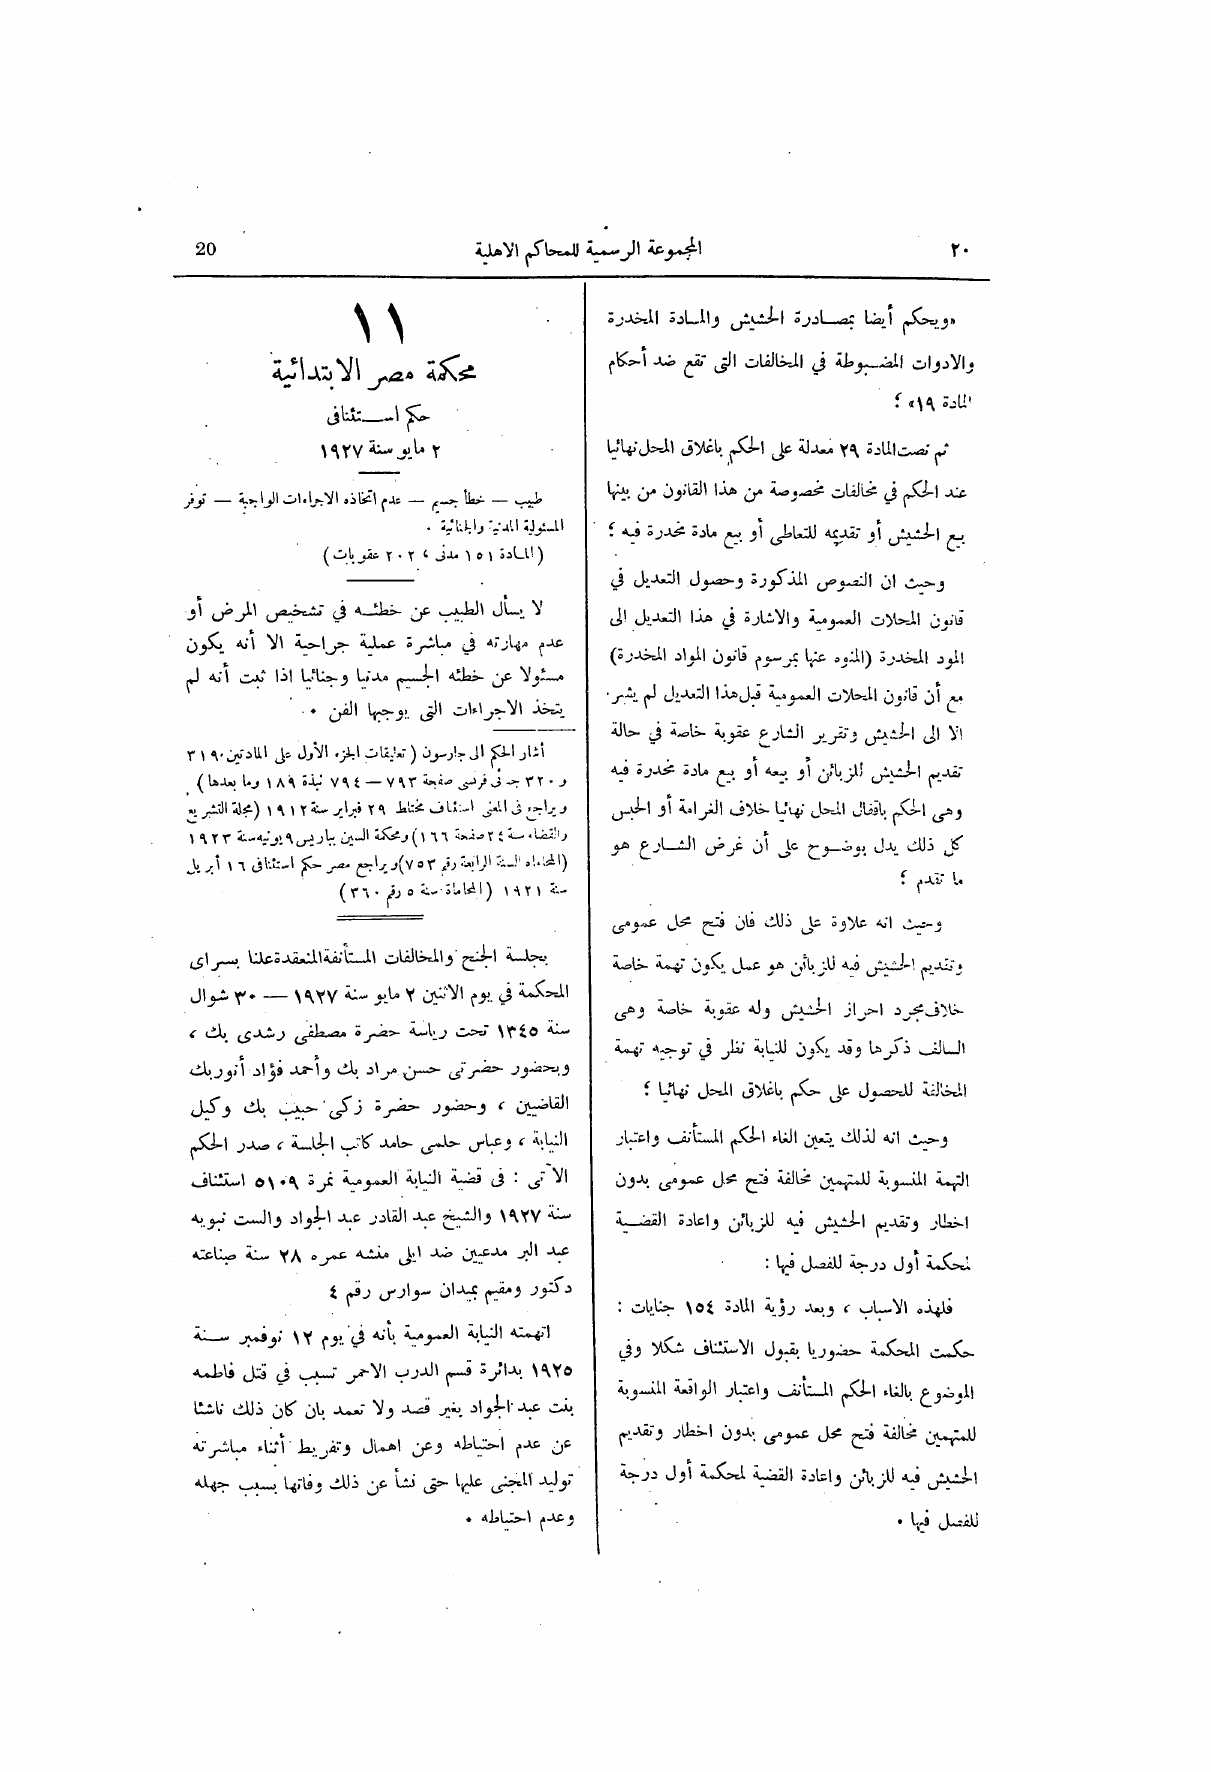 ٢٠
المجموعة الرسمية للمحاكم الاهلية
20
«ويحكم أيضا بمصادرة الحشيش والمادة المخدرة
والادوات المضبوطة في المخالفات التى تقع ضد أحكام
المادة ١٩» ؛
ثم نصت المادة ٢٩ معدلة على الحكم باغلاق المحل نهائيا
عند الحكم في مخالفات مخصوصة من هذا القانون من بينها
بيع الحشيش أو تقديمه للتعاطى أو بيع مادة مخدرة فيه ؛
وحيث ان النصوص المذكورة وحصول التعديل في
قانون المحلات العمومية والاشارة في هذا التعديل الى
المود المخدرة (المنوه عنها بمرسوم قانون المواد المخدرة)
مع أن قانون المحلات العمومية قبل هذا التعديل لم يشر
الا الى الحشيش وتقرير الشارع عقوبة خاصة في حالة
تقديم الحشيش للزبائن أو بيعه أو بيع مادة مخدرة فيه
وهى الحكم باقفال المحل نهائيا خلاف الغرامة أو الحبس
كل ذلك يدل بوضوح على أن غرض الشارع هو
ما تقدم ؛
وحيث انه علاوة على ذلك فان فتح محل عمومى
وتقديم الحشيش فيه للزبائن هو عمل يكون تهمة خاصة
خلاف مجرد احراز الحشيش وله عقوبة خاصة وهى
السالف ذكرها وقد يكون للنيابة نظر في توجيه تهمة
المخالفة للحصول على حكم باغلاق المحل نهائيا ؛
وحيث انه لذلك يتعين الغاء الحكم المستأنف واعتبار
التهمة المنسوبة للمتهمين مخالفة فتح محل عمومى بدون
اخطار وتقديم الحشيش فيه للزبائن واعادة القضية
لمحكمة أول درجة للفصل فيها :
فلهذه الاسباب ، وبعد رؤية المادة ١٥٤ جنايات :
حكمت المحكمة حضوريا بقبول الاستئناف شكلا وفي
الموضوع بالغاء الحكم المستأنف واعتبار الواقعة المنسوبة
للمتهمين مخالفة فتح محل عمومى بدون اخطار وتقديم
الحشيش فيه للزبائن واعادة القضية لمحكمة أول درجة
للفصل فيها .
١١
محكمة مصر الابتدائية
حكم استئنافى
٢ مايو سنة ١٩٢٧
طبيب — خطأ جسيم — عدم اتخاذه الاجراءات الواجبة — توفر
المسئولية المدنية والجنائية .
(المادة ١٥١ مدنى ، ٢٠٢ عقوبات)
لا يسأل الطبيب عن خطئه في تشخيص المرض أو
عدم مهارته في مباشرة عملية جراحية الا أنه يكون
مسئولا عن خطئه الجسيم مدنيا وجنائيا اذا ثبت أنه لم
يتخذ الاجراءات التى يوجبها الفن .
أشار الحكم الى جارسون ( تعليقات الجزء الأول على المادتين ٣١٩
و ٣٢٠ جنائى فرنسى صفحة ٧٩٣ — ٧٩٤ نبذة ١٨٩ وما بعدها) .
ويراجع فى المعنى استئناف مختلط ٢٩ فبراير سنة ١٩١٢ (مجلة التشريع
والقضاء سنة ٢٤ صفحة ١٦٦) ومحكمة السين بباريس ٩ يونيه سنة ١٩٢٣
(المحاماه السنة الرابعة رقم ٧٥٣) ويراجع مصر حكم استئنافى ١٦ أبريل
سنة ١٩٢١ (المحاماة سنة ٥ رقم ٣٦٠)
بجلسة الجنح والمخالفات المستأنفة المنعقدة علنا بسراى
المحكمة في يوم الاثنين ٢ مايو سنة ١٩٢٧ — ٣٠ شوال
سنة ١٣٤٥ تحت رياسة حضرة مصطفى رشدى بك ،
وبحضور حضرتى حسن مراد بك وأحمد فؤاد أنور بك
القاضيين ، وحضور حضرة زكى حبيب بك وكيل
النيابة ، وعباس حلمى حامد كاتب الجلسة ، صدر الحكم
الآتى : فى قضية النيابة العمومية نمرة ٥١٠٩ استئناف
سنة ١٩٢٧ والشيخ عبد القادر عبد الجواد والست نبويه
عبد البر مدعيين ضد ايلى منشه عمره ٢٨ سنة صناعته
دكتور ومقيم بميدان سوارس رقم ٤
اتهمته النيابة العمومية بأنه في يوم ١٢ نوفمبر سنة
١٩٢٥ بدائرة قسم الدرب الاحمر تسبب في قتل فاطمه
بنت عبد الجواد بغير قصد ولا تعمد بان كان ذلك ناشئا
عن عدم احتياطه وعن اهمال وتفريط أثناء مباشرته
توليد المجنى عليها حتى نشأ عن ذلك وفاتها بسبب جهله
وعدم احتياطه .